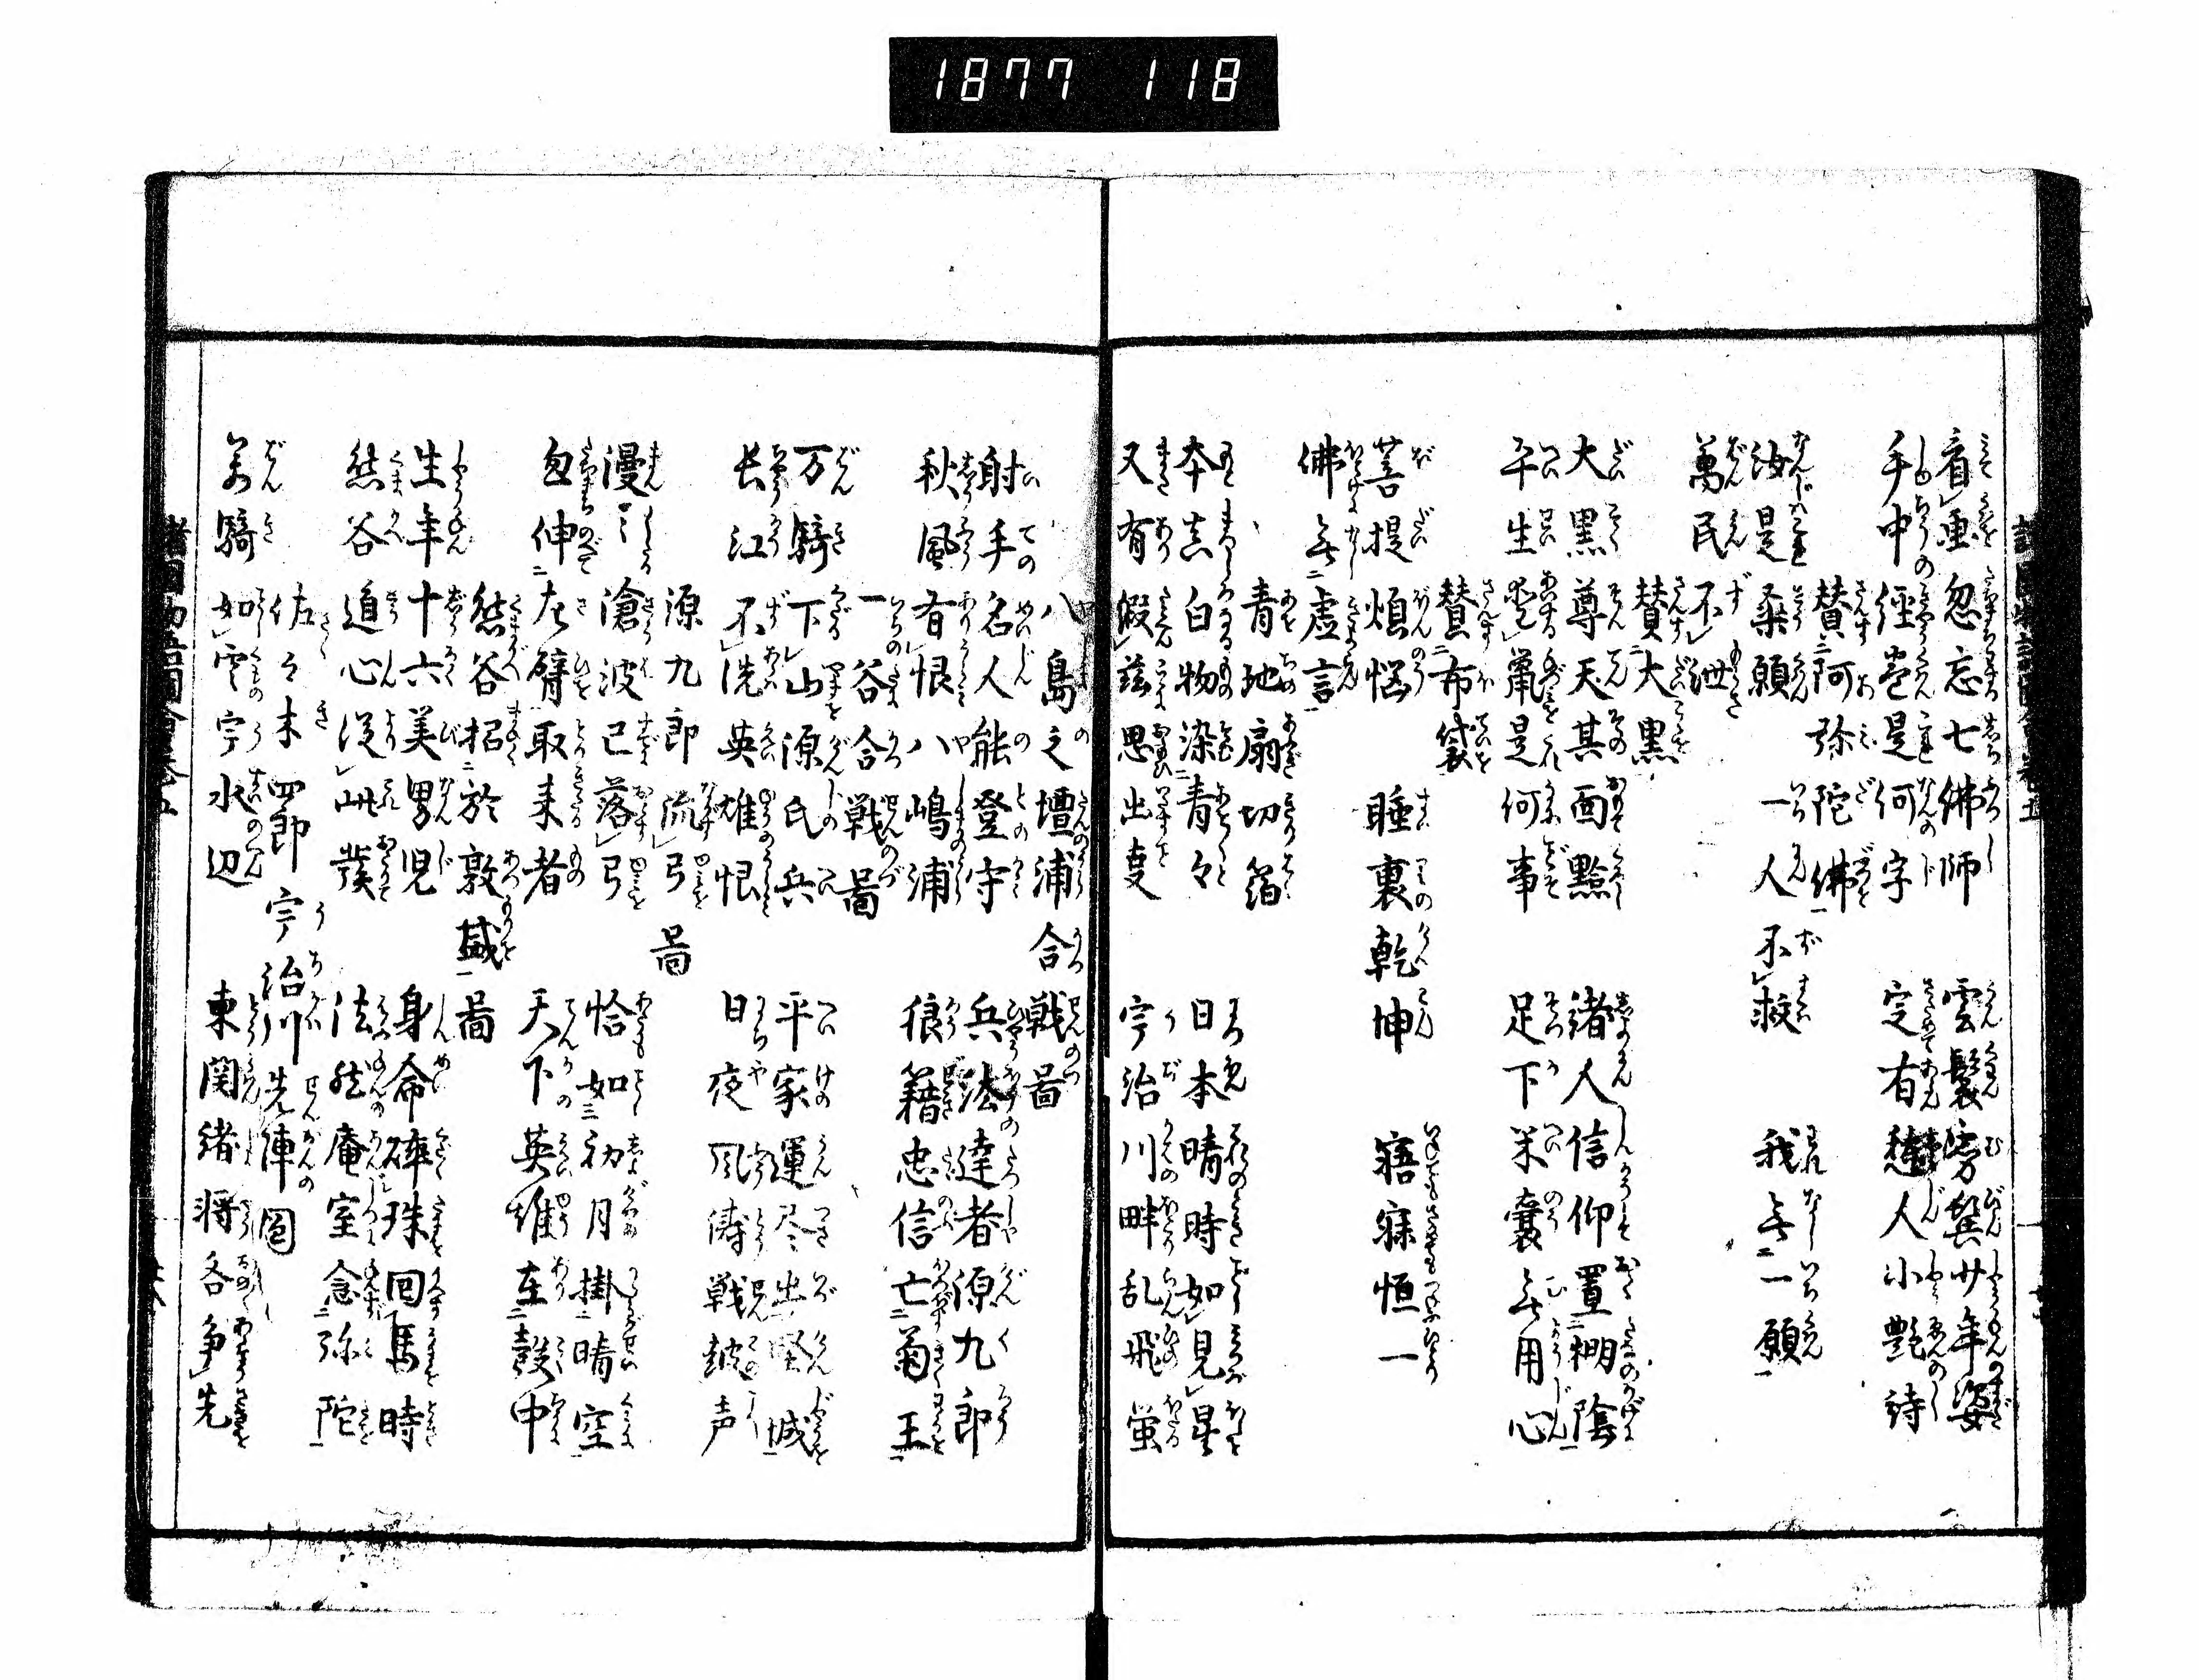 1877 118
看画忽忘七佛師 雲鬟雰鬢廿年姿
手中經巻是何字 定有愁人小艶詩
賛阿弥陀佛
汝是桑願一人不救 我無一願
萬民不泄
賛大黒
大黒尊天其面黙 緒人信仰置棚陰
平生坐俵是何事 足下米嚢無用心
賛布袋
菩提煩悩 睡裏乾坤 寤寐恒一
佛無虚言
青地扇切箔
本来白物染青々 日本晴時如見星
又有假茲思出度 宇治川畔乱飛蛍
八島之壇浦合戦啚
射手名人能登守 兵法達者源九郎
秋風有恨八嶋浦 狼籍忠信亡菊王
一谷合戦啚
万騎下山源氏兵 平家運尽出堅城
長江不洗英雄恨 日夜風濤戦鼓声
源九郎流弓啚
漫々滄波已落弓 恰如初月掛晴空
忽伸左臂取来者 天下英雄在彀中
熊谷招於敦盛啚
生年十六美男児 身命砕珠回馬時
熊谷道心従此發 法然庵室念弥陀
佐々木四郎宇治川先陣圖
万騎如雲宇水辺 東関緒将各争先
諸国物語圖會巻五